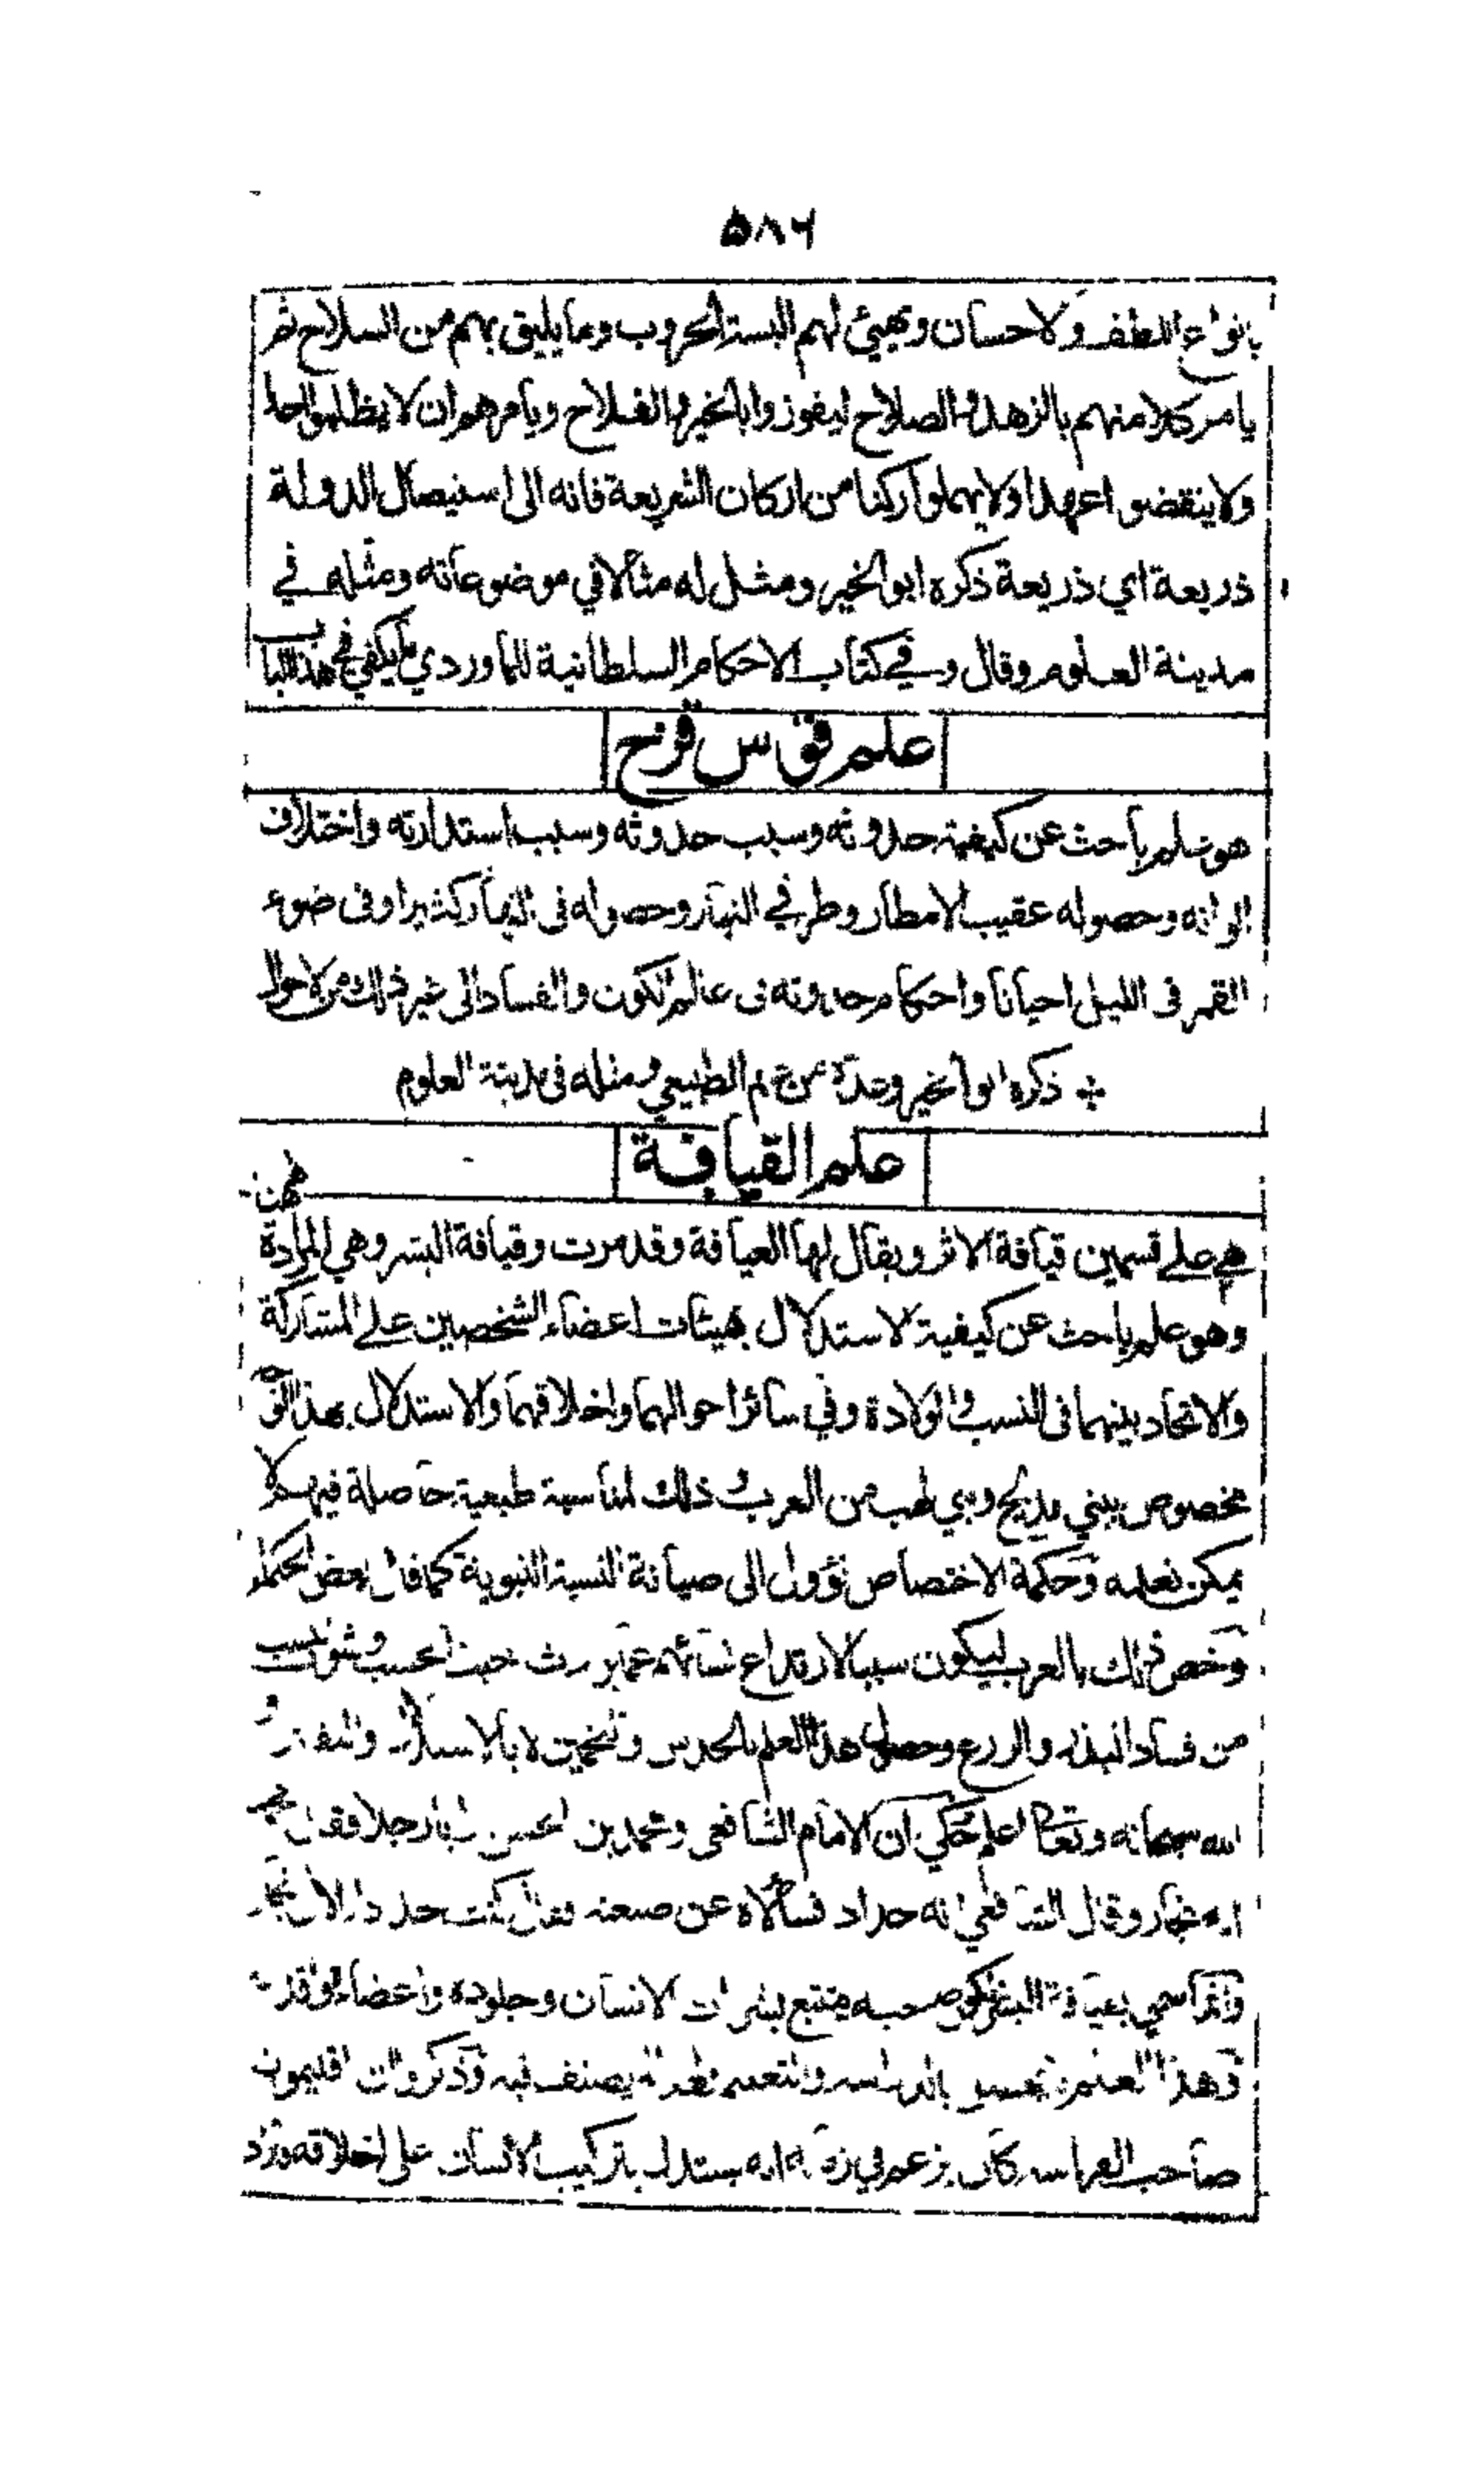 ٥٨٦
بانواع اللطف والاحسان ويهيئ لهم البسة الحروب وما يليق بهم من السلاح ثم
يامر كلا منهم بالزهد والصلاح ليفوزوا بالخير والفلاح ويأمرهم ان لا يظلموا احدا
ولا ينقضوا عهدا ولا يهملوا ركنا من اركان الشريعة فانه الى استيصال الدولة
ذريعة اي ذريعة ذكره ابو الخير ومثل له مثالا في موضوعاته ومثله في
مدينة العلوم وقال وفي كتاب الاحكام السلطانية للماوردي ما يكفي في هذا الباب
علم قوس قزح
هو علم باحث عن كيفية حدوثه وسبب حدوثه وسبب استدارته واختلاف
الوانه وحصوله عقيب الامطار وطرفي النهار وحصوله في النهار كثيرا وفي ضوء
القمر في الليل احيانا واحكام حدوثه في عالم الكون والفساد الى غير ذلك من الاحوال
ذكره ابو الخير وعده من علم الطبيعي ومثله في مدينة العلوم
علم القيافة
هي على قسمين قيافة الاثر ويقال لها العيافة وقد مرت وقيافة البشر وهي المرادة ههنا
وهو علم باحث عن كيفية الاستدلال بهيئات اعضاء الشخصين على المشاركة
والاتحاد بينهما في النسب والولادة وفي سائر احوالهما واخلاقهما والاستدلال بهذا الوجه
مخصوص ببني مدلج وبني لهب من العرب وذلك لمناسبة طبيعية حاصلة فيهم لا
يمكن تعلمه وحكمة الاختصاص تؤول الى صيانة النسبة النبوية كما قال بعض الحكماء
وخص ذلك بالعرب ليكون سببا لارتداع نسائهم عما يورث خبث الحسب وشوب النسب
من فساد البذر والزرع وحصول هذا العلم بالحدس والتخمين لا بالاستدلال واليقين و
الله سبحانه وتعالى اعلم حكي ان الامام الشافعي ومحمد بن الحسن رايا رجلا فقال محمد
انه نجار وقال الشافعي انه حداد فسألاه عن صنعته فقال كنت حدادا والآن نجار
وانما سمي بقيافة البشر لكون صاحبه متتبع بشرات الانسان وجلوده واعضاءه واقدامه
وهذا العلم لا يحصل بالدراسة والتعليم ولهذا لم يصنف فيه وذكروا ان اقليمون
صاحب الفراسة كان يزعم في زمانه انه يستدل بتركيب الانسان على اخلاقه